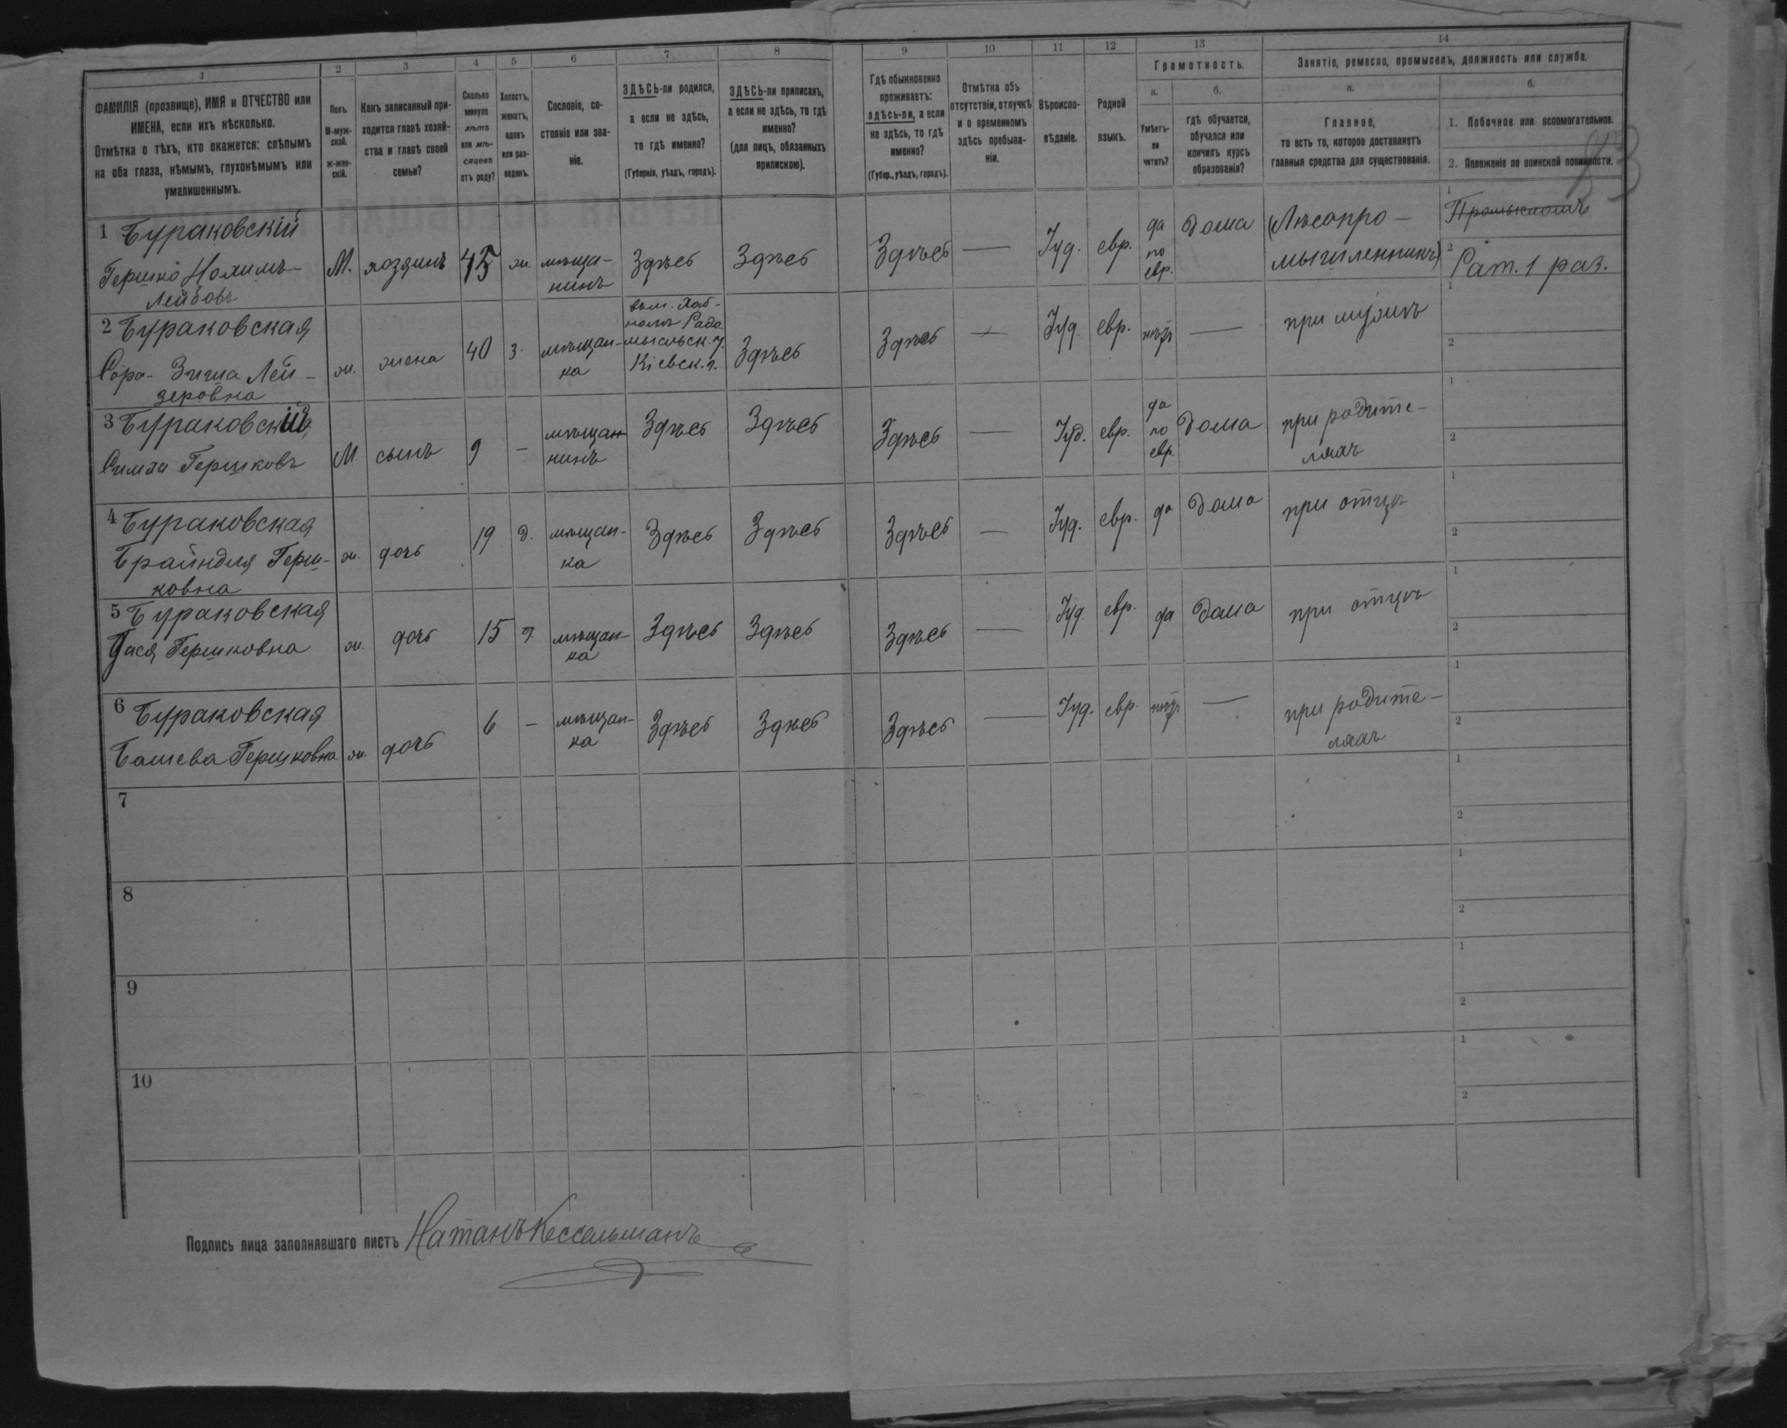 1
2
3
4
5
6
7
8
9
10
11
12
13
14
ФАМИЛІЯ (прозвище), ИМЯ и ОТЧЕСТВО или
ИМЕНА, если ихъ нѣсколько.
Отмѣтка о тѣхъ, кто окажется: слѣпымъ
на оба глаза, нѣмымъ, глухонѣмымъ или
умалишеннымъ.
Полъ.
М-муж-
ской.
Ж-жен-
скій.
Какъ записанный при-
ходится главѣ хозяй-
ства и главѣ своей
семьи?
Сколько
минуло
лѣтъ
или мѣ-
сяцевъ
отъ роду?
Холостъ,
женатъ,
вдовъ
или раз-
веденъ.
Сословіе, со-
стояніе или зва-
ніе.
ЗДѢСЬ-ли родился,
а если не здѣсь,
то гдѣ именно?
(Губернія, уѣздъ, городъ).
ЗДѢСЬ-ли приписанъ,
а если не здѣсь, то гдѣ
именно?
(для лицъ, обязанныхъ
припискою).
Гдѣ обыкновенно
проживаетъ:
здѣсь-ли, а если
не здѣсь, то гдѣ
именно?
(Губер., уѣздъ, городъ).
Отмѣтка объ
отсутствіи, отлучкѣ
и о временномъ
здѣсь пребыва-
ніи.
Вѣроиспо-
вѣданіе.
Родной
языкъ.
Грамотность.
а.
Умѣетъ-
ли
читать?
б.
гдѣ обучается,
обучался или
кончилъ курсъ
образованія?
Занятіе, ремесло, промыселъ, должность или служба.
а.
Главное,
то есть то, которое доставляетъ
главныя средства для существованія.
б.
1. Побочное или вспомогательное.
2. Положеніе по воинской повинности.
1 Бураковскій
Гершко Нохимъ-
Лейбовъ
М. хозяинъ 45 ж. мѣща-
нинъ
Здѣсь Здѣсь Здѣсь — Іуд. евр.
да
по
евр.
дома
(Лѣсопро-
мышленникъ)
1
2 Рат. 1 раз.
2 Бураковская
Сора- Лей-
зеровна
ж. жена 40 з. мѣщан-
ка
Радо
мысльск. у.
Кіевск. г.
Здѣсь Здѣсь — Іуд. евр. нѣтъ — при мужѣ
1
2
3 Бураковскій
Симха Гершковъ
М сынъ 9 — мѣщан
нинъ
Здѣсь Здѣсь Здѣсь — Іуд. евр.
да
по
евр.
дома
при родите-
ляхъ
1
2
4 Бураковская
Брайндля Герш-
ковна
ж. дочь 19 д. мѣщан-
ка
Здѣсь Здѣсь Здѣсь — Іуд. евр. да дома при отцѣ
1
2
5 Бураковская
Гершковна
ж. дочь 15 д. мѣщан-
ка
Здѣсь Здѣсь Здѣсь — Іуд. евр. да дома при отцѣ
1
2
6 Бураковская
Башева Гершковна
ж. дочь 6 — мѣщан-
ка
Здѣсь Здѣсь Здѣсь — Іуд. евр. нѣтъ —
при родите-
ляхъ
1
2
7
1
2
8
1
2
9
1
2
10
1
2
Подпись лица заполнявшаго листъ Натанъ Кессельманъ